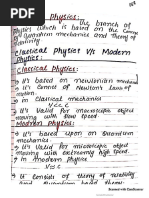 Physics:
is the branch of
Physics which is based on the conc
of Quantum mechanics and Theory of
Relativity
Classical Physics V/s Modern
Physics:
Classical Physics:
It's based on newtonian mechani
It's consist of Newton's Laws of
motion
In classical mechanics
V<<c
Valid for macroscopic object
moving with less speed.
Modern physics:
It's based upon on Quantum
mechanics.
It's Valid for microscopic object
moving with extremely high speed.
In modern physics
It consists of theory of relativity
Scanned with CamScanner